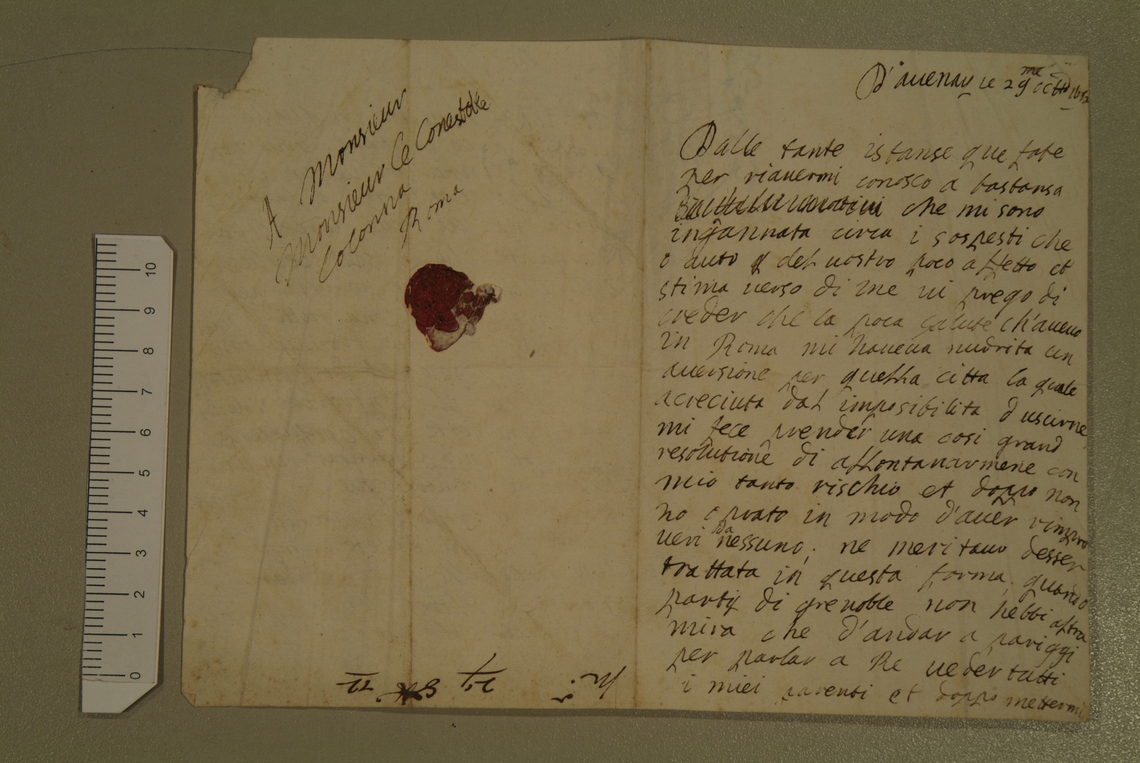 A Monsieur
Monsieur Le Conestable
Colonna
Roma
D'avenay le 29me octb 1672
Dalle tante istanse que fate
per riavermi conosco a bastansa
che mi sono
ingannata circa i sospesti che
o auto del vostro poco affetto et
stima verso di me vi prego di
creder che la poca salute ch'avevo
in Roma mi haveva nudrita un
aversione per quella citta la quale
acreciuta dal imposibilita d'uscirne
mi fece prender una cosi grand
resolutione di allontanarmene con
mio tanto rischio et doppo non
ho oprato in modo d'aver rimpro
veri da nessuno; ne meritavo desser
trattata in questa forma, quando
party di grenoble non hebbi altra
mira che d'andar a pariggi
per parlar a Re veder tutti
i miei parenti et doppo mettermi
10
9
8
7
6
5
4
3
2
1
0